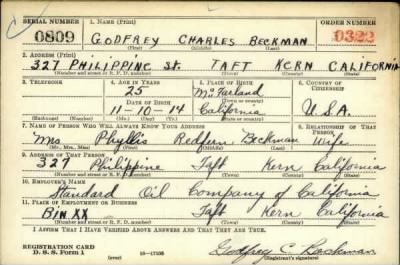 SERIAL NUMBER 1. NAME (Print) ORDER NUMBER
0809 GODFREY CHARLES BECKMAN 0322
(First) (Middle) (Last)
2. ADDRESS (Print)
327 PHILIPPINE St. TAFT KERN CALIFORNIA
(Number and street or R. F. D. number) (Town) (County) (State)
3. TELEPHONE 4. AGE IN YEARS 5. PLACE OF BIRTH 6. COUNTRY OF CITIZENSHIP
25 McFarland
(Town or county)
DATE OF BIRTH
11-10-14 California U.S.A.
(Exchange) (Number) (Mo.) (Day) (Yr.) (State or country)
7. NAME OF PERSON WHO WILL ALWAYS KNOW YOUR ADDRESS 8. RELATIONSHIP OF THAT PERSON
Mrs Phyllis Redfern Beckman Wife
(Mr., Mrs., Miss) (First) (Middle) (Last)
9. ADDRESS OF THAT PERSON
327 Philippine Taft Kern California
(Number and street or R. F. D. number) (Town) (County) (State)
10. EMPLOYER'S NAME
Standard Oil Company of California
11. PLACE OF EMPLOYMENT OR BUSINESS
Bin XX Taft Kern California
(Number and street or R. F. D. number) (Town) (County) (State)
I AFFIRM THAT I HAVE VERIFIED ABOVE ANSWERS AND THAT THEY ARE TRUE.
REGISTRATION CARD
D. S. S. Form 1 (over) 16-17105 Godfrey C. Beckman
(Registrant's signature)